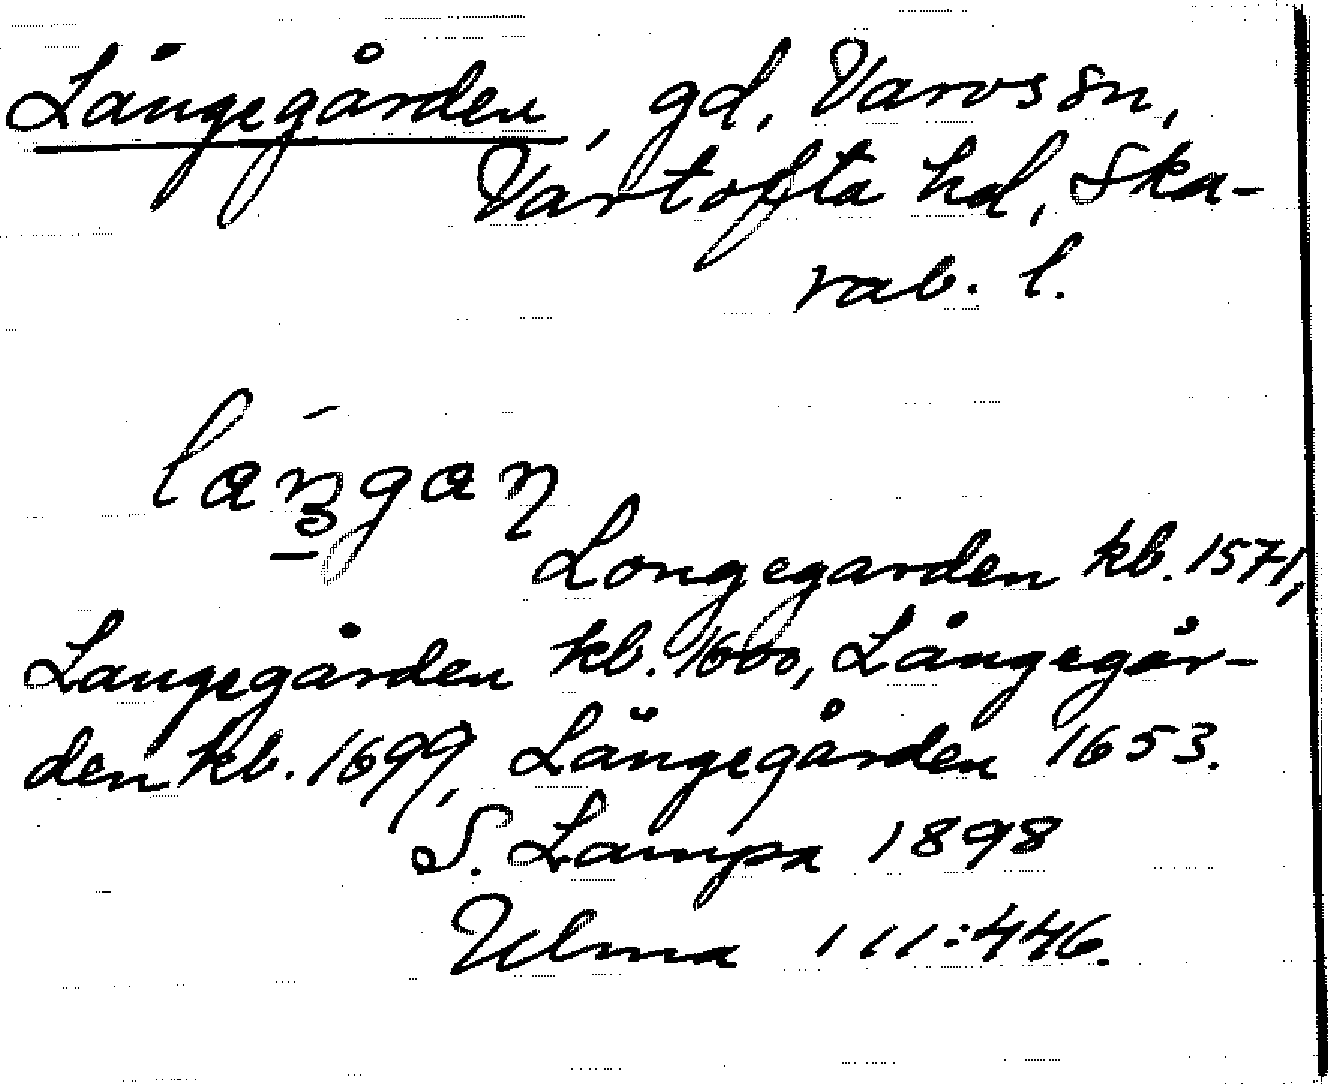 Långegården, gd, Varvs sn,
Vartofta hd, Ska-
rab. l.
Longegarden kb. 1571,
Langegården kb. 1600, Långegår-
den kb. 1699, Längegården 1653.
S. Lampa 1898
Ulma 111:446.